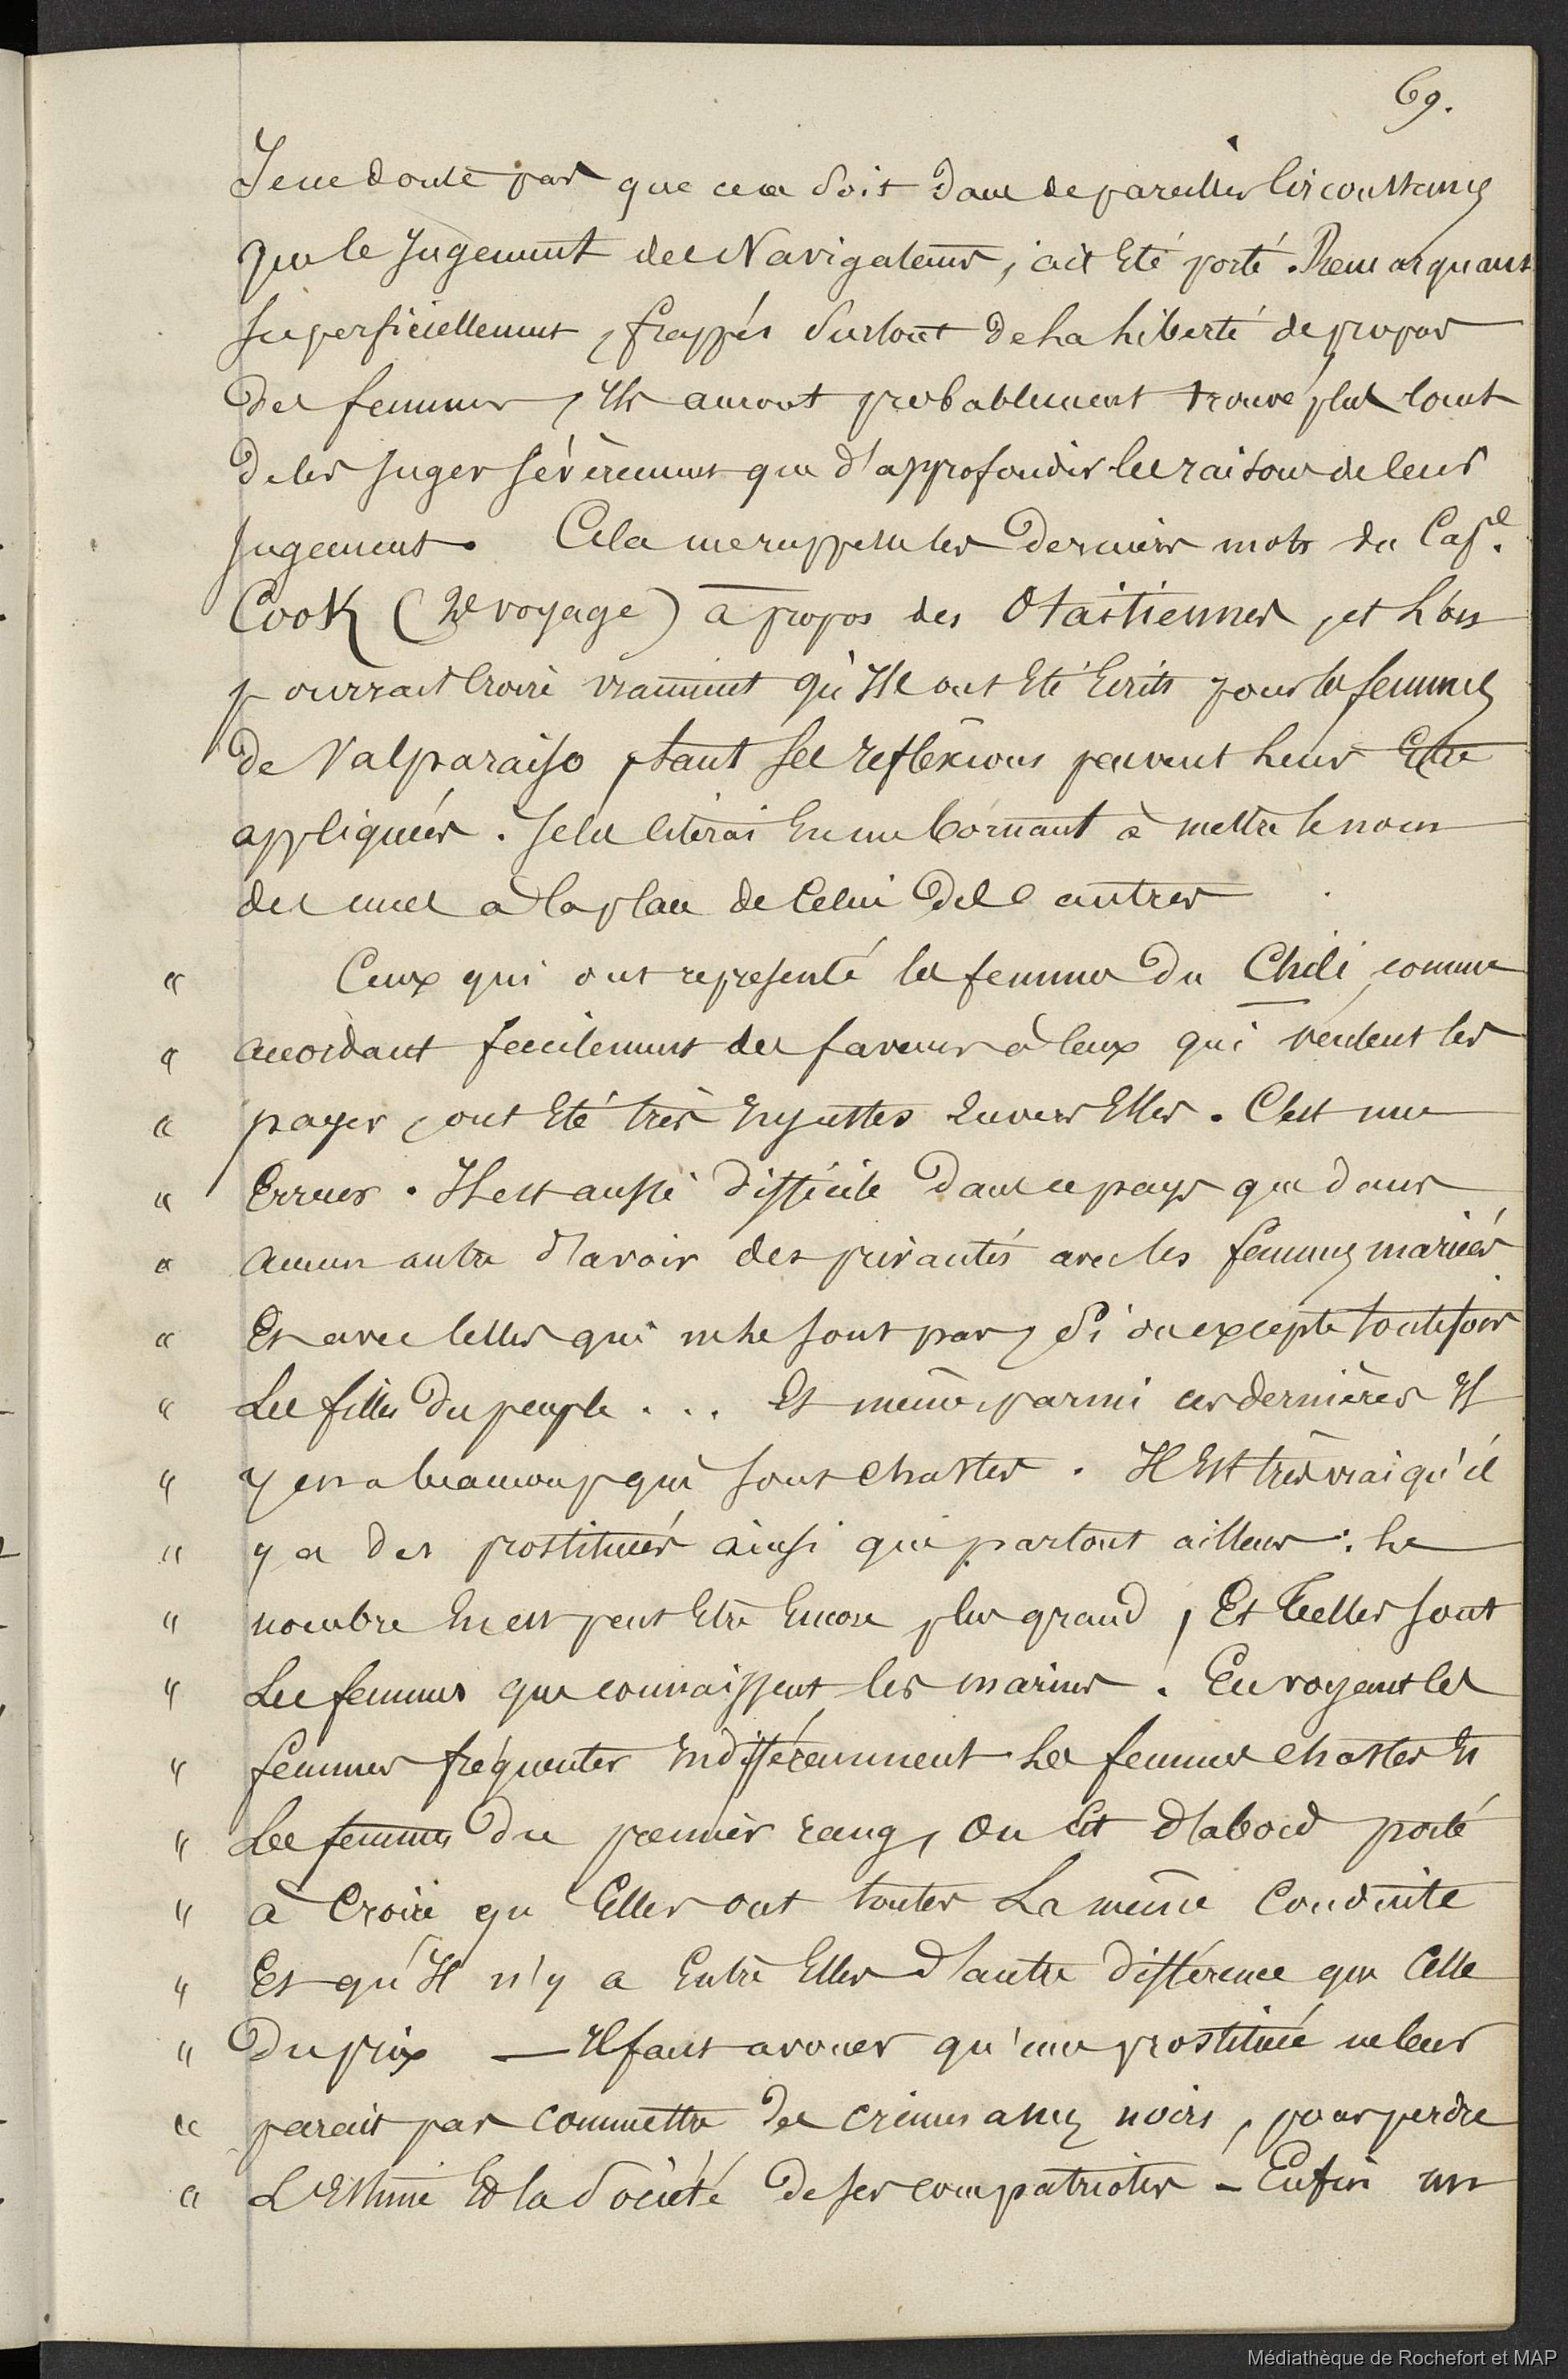 69.
Je ne doute pas que ce ne soit dans de pareilles Circonstances
que le Jugement des Navigateurs, ait Eté porté. Remarquant
superficiellement, frappés surtout de La Liberté de propos
des femmes, Ils auront probablement trouvé plus court
de les Juger sévèrement que d'approfondir les raisons de leur
Jugement. Cela me rappelle les derniers mots du Cape.
Cook (2e voyage) à propos des Otaitiennes, et L'on
pourrait Croire vraiment qu'Ils ont Eté Ecrits pour les femmes
de Valparaiso, tant ses reflexions peuvent Leur Etre
appliquées. Je les Citerai En me bornant à mettre le nom
des unes à la place de Celui des autres
" Ceux qui ont représenté les femmes du Chili comme
" accordant facilement des faveurs à Ceux qui veulent les
" payer, ont Eté très Injustes Envers Elles. C'est une
" Erreur. Il est aussi difficile dans ce pays que dans
" aucun autre d'avoir des privautés avec les femmes mariées
" Et avec Celles qui ne Le sont pas, si on excepte toutefois
" Les filles du peuple... Et même parmi ces dernières Il
" y en a beaucoup qui sont chastes. Il Est très vrai qu'il
" y a des prostituées ainsi que partout ailleurs : Le
" nombre En est peut Etre Encore plus grand, Et telles sont
" Les femmes que connaissent les marins. En voyant les
" femmes fréquenter Indifféremment Les femmes chastes Et
" Les femmes du premier rang, on Est d'abord porté
" à Croire qu'Elles ont toutes La même Conduite
" Et qu'Il n'y a Entre Elles d'autre différence que Celle
" Du prix — Il faut avouer qu'une prostituée ne leur
" parait pas commettre des crimes assez noirs, pour perdre
" L'Estime Et la Société de ses compatriotes — Enfin un
Médiathèque de Rochefort et MAP